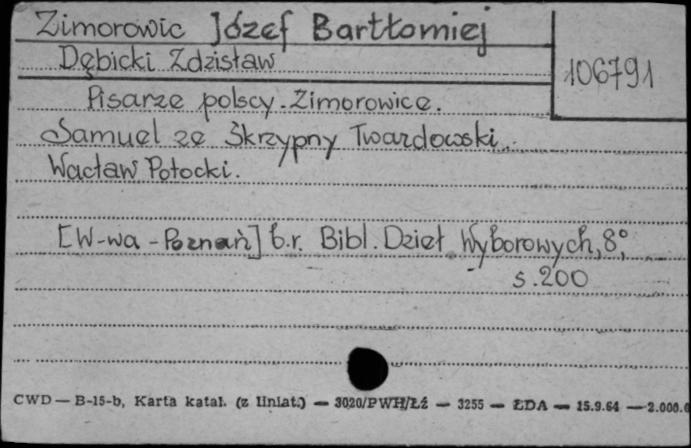 Zimorowic Józef Bartłomiej
Dębicki Zdzisław
106791
Pisarze polscy. Zimorowice.
Samuel ze Skrzypny Twardowski.
Wacław Potocki.
[W-wa - Poznań] b.r. Bibl. Dzieł Wyborowych, 8°,
s. 200
CWD — B-15-b, Karta katal. (z liniat.) — 3020/PWH/Łź — 3255 — ŁDA — 15.9.64 — 2.000.0